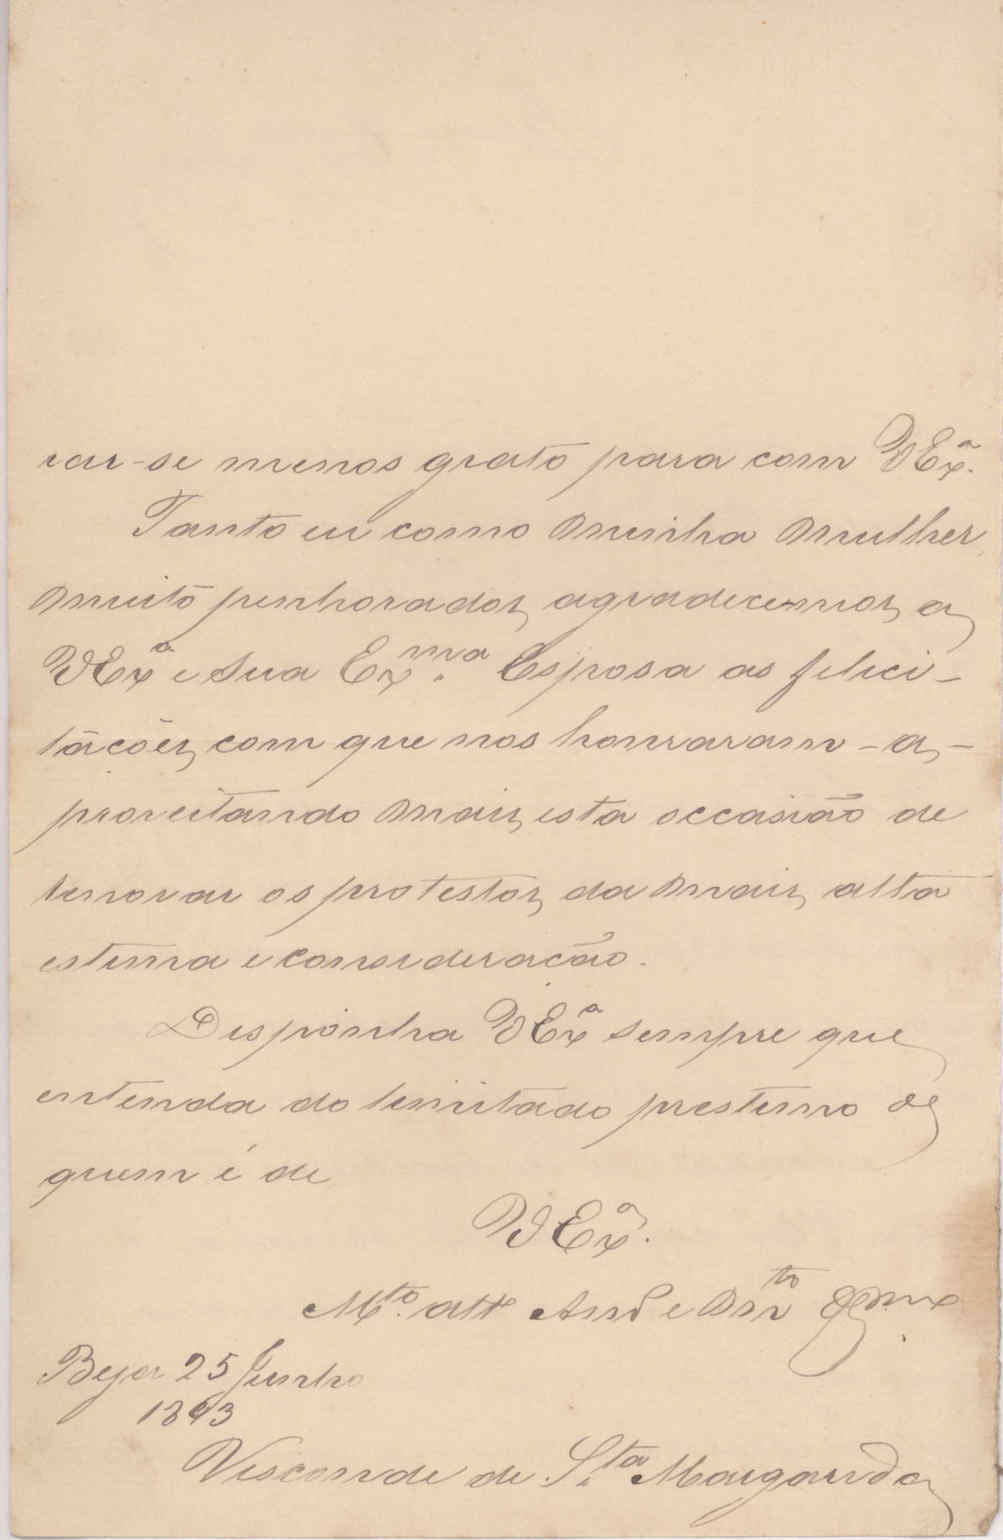 rar-se menos grato para com VExª.
Tanto eu como minha mulher
muito penhorados agradecemos a
VExª e sua Exmª. Esposa as felici-
tacões com que nos honraram - a-
proveitando mais esta occasião de
renovar os protestos da mais alta
estima e consideracão.
Disponha VExª sempre que
entenda do limitado prestimo de
quem é de
VExª.
Mto. attº Amº e
Beja 25 Junho
1893
Visconde de Sta. Margarida